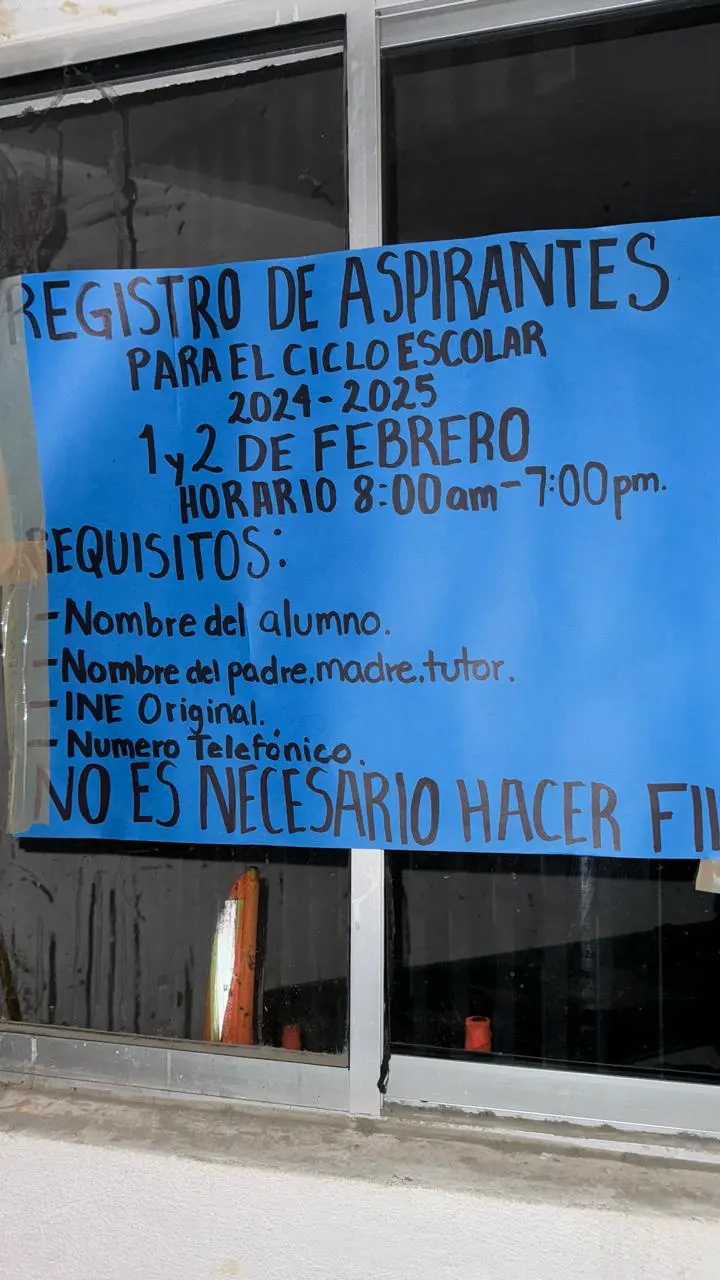 REGISTRO DE ASPIRANTES
PARA EL CICLO ESCOLAR
2024-2025
1 y 2 DE FEBRERO
HORARIO 8:00am-7:00pm.
REQUISITOS:
-Nombre del alumno.
-Nombre del padre,madre,tutor.
-INE Original.
-Numero Telefónico.
NO ES NECESARIO HACER